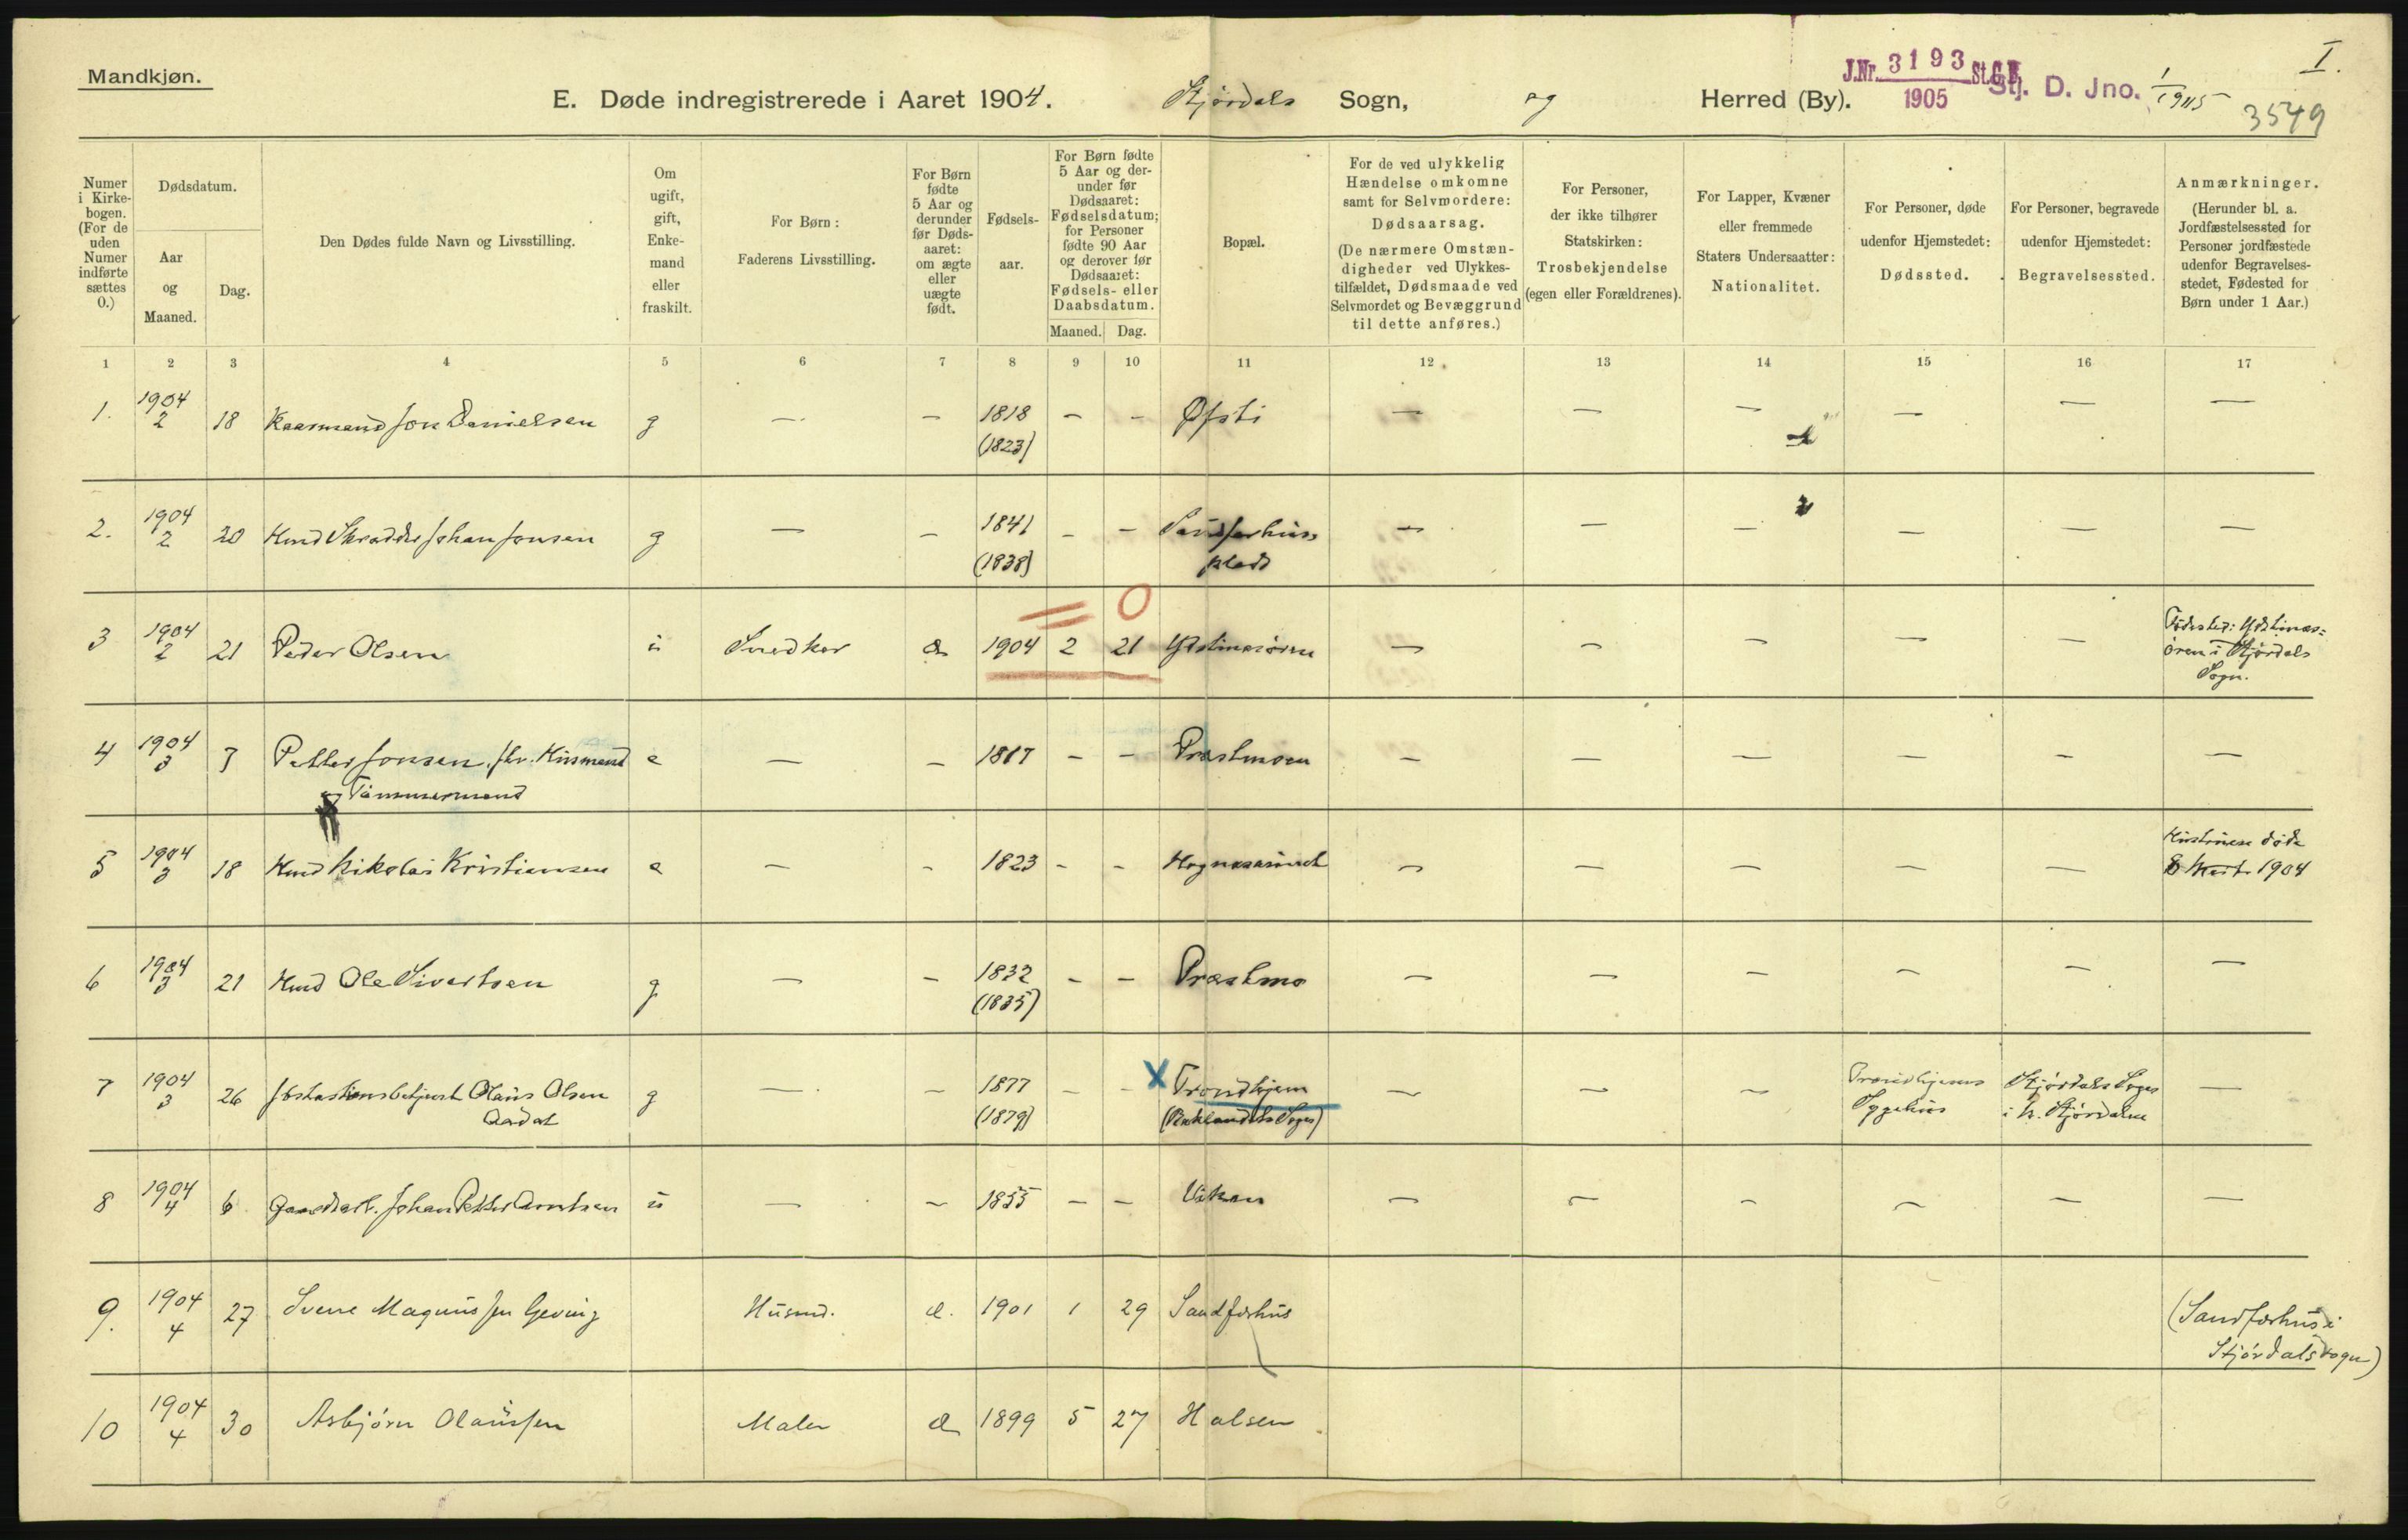 Mandkjøn.
E. Døde indregistrerede i Aaret 1904. Stjørdals Sogn, og Herred (By).
J.Nr. 3193 St.C.B. 1905
Stj. D. Jno. 1/1905
I.
3549
Numer i Kirkebogen. (For de uden Numer indførte sættes 0.)
Dødsdatum.
Aar og Maaned.
Dag.
Den Dødes fulde Navn og Livsstilling.
Om ugift, gift, Enkemand eller fraskilt.
For Børn: Faderens Livsstilling.
For Børn fødte 5 Aar og derunder før Dødsaaret: om ægte eller uægte født.
Fødselsaar.
For Børn fødte 5 Aar og derunder før Dødsaaret: Fødselsdatum; for Personer fødte 90 Aar og derover før Dødsaaret: Fødsels- eller Daabsdatum.
Maaned. Dag.
Bopæl.
For de ved ulykkelig Hændelse omkomne samt for Selvmordere: Dødsaarsag. (De nærmere Omstændigheder ved Ulykkestilfældet, Dødsmaade ved Selvmordet og Bevæggrund til dette anføres.)
For Personer, der ikke tilhører Statskirken: Trosbekjendelse (egen eller Forældrenes).
For Lapper, Kvæner eller fremmede Staters Undersaatter: Nationalitet.
For Personer, døde udenfor Hjemstedet: Dødssted.
For Personer, begravede udenfor Hjemstedet: Begravelsessted.
Anmærkninger. (Herunder bl. a. Jordfæstelsessted for Personer jordfæstede udenfor Begravelsesstedet, Fødested for Børn under 1 Aar.)
1 2 3 4 5 6 7 8 9 10 11 12 13 14 15 16 17
1. 1904 2 18 Kaarmand Jon Danielsen g — — 1818 (1823) — — Øfsti — — — — — —
2. 1904 2 20 Husmd Skrædder Johan Jonsen g — — 1841 (1838) — — Sandferhus plads — — — — — —
3 1904 2 21 Peder Olsen u Snedker æ 1904 2 21 Ydstinesøren — — — — — Fødested: Ydstinesøren i Stjørdals Sogn.
0
4 1904 3 7 Petter Jonsen, fhv. Husmand og Tømmermand e — — 1817 — — Præstmoen — — — — — —
5 1904 3 18 Husmd Nikolai Kristiansen e — — 1823 — — Hognesaunet — — — — — Hustruen døde 8 Marts 1904
6 1904 3 21 Husmd Ole Sivertsen g — — 1832 (1835) — — Præstmo — — — — — —
7 1904 3 26 Jbstationsbetjent Olaus Olsen Aadal g — — 1877 (1879) — — X Trondhjem (Baklandets Sogn) — — — Trondhjems Sygehus Stjørdals Sogn i N. Stjørdalen —
8 1904 4 6 Gaardarb. Johan Petter Arntsen u — — 1855 — — Vikan — — — — — —
9. 1904 4 27 Sverre Magnussen Geving Husmd. æ. 1901 1 29 Sandferhus (Sandferhus i Stjørdals sogn)
10 1904 4 30 Asbjørn Olaussen Maler æ 1899 5 27 Halsen